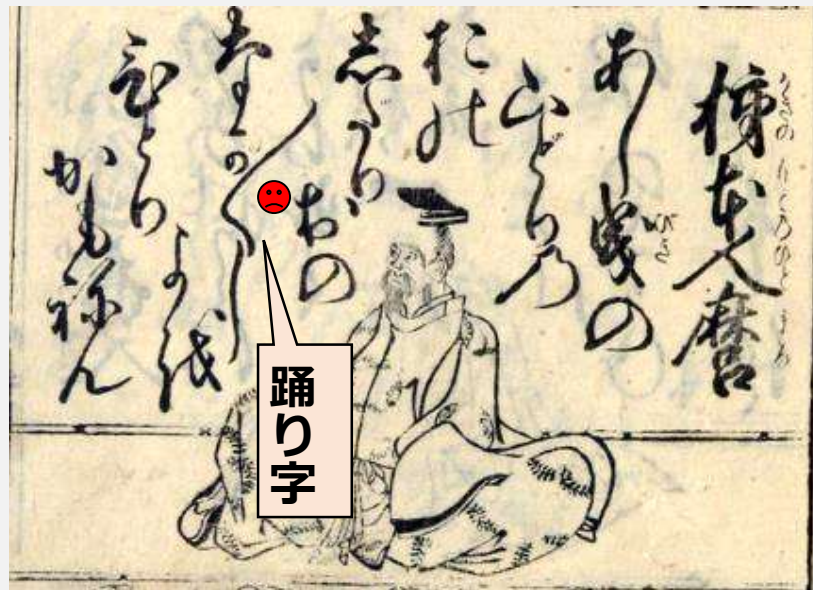 柿本人麿
あし曳の
山どりの
おの
しだり
おの
なが〱し
よを
ひとり
かもねん
踊り字